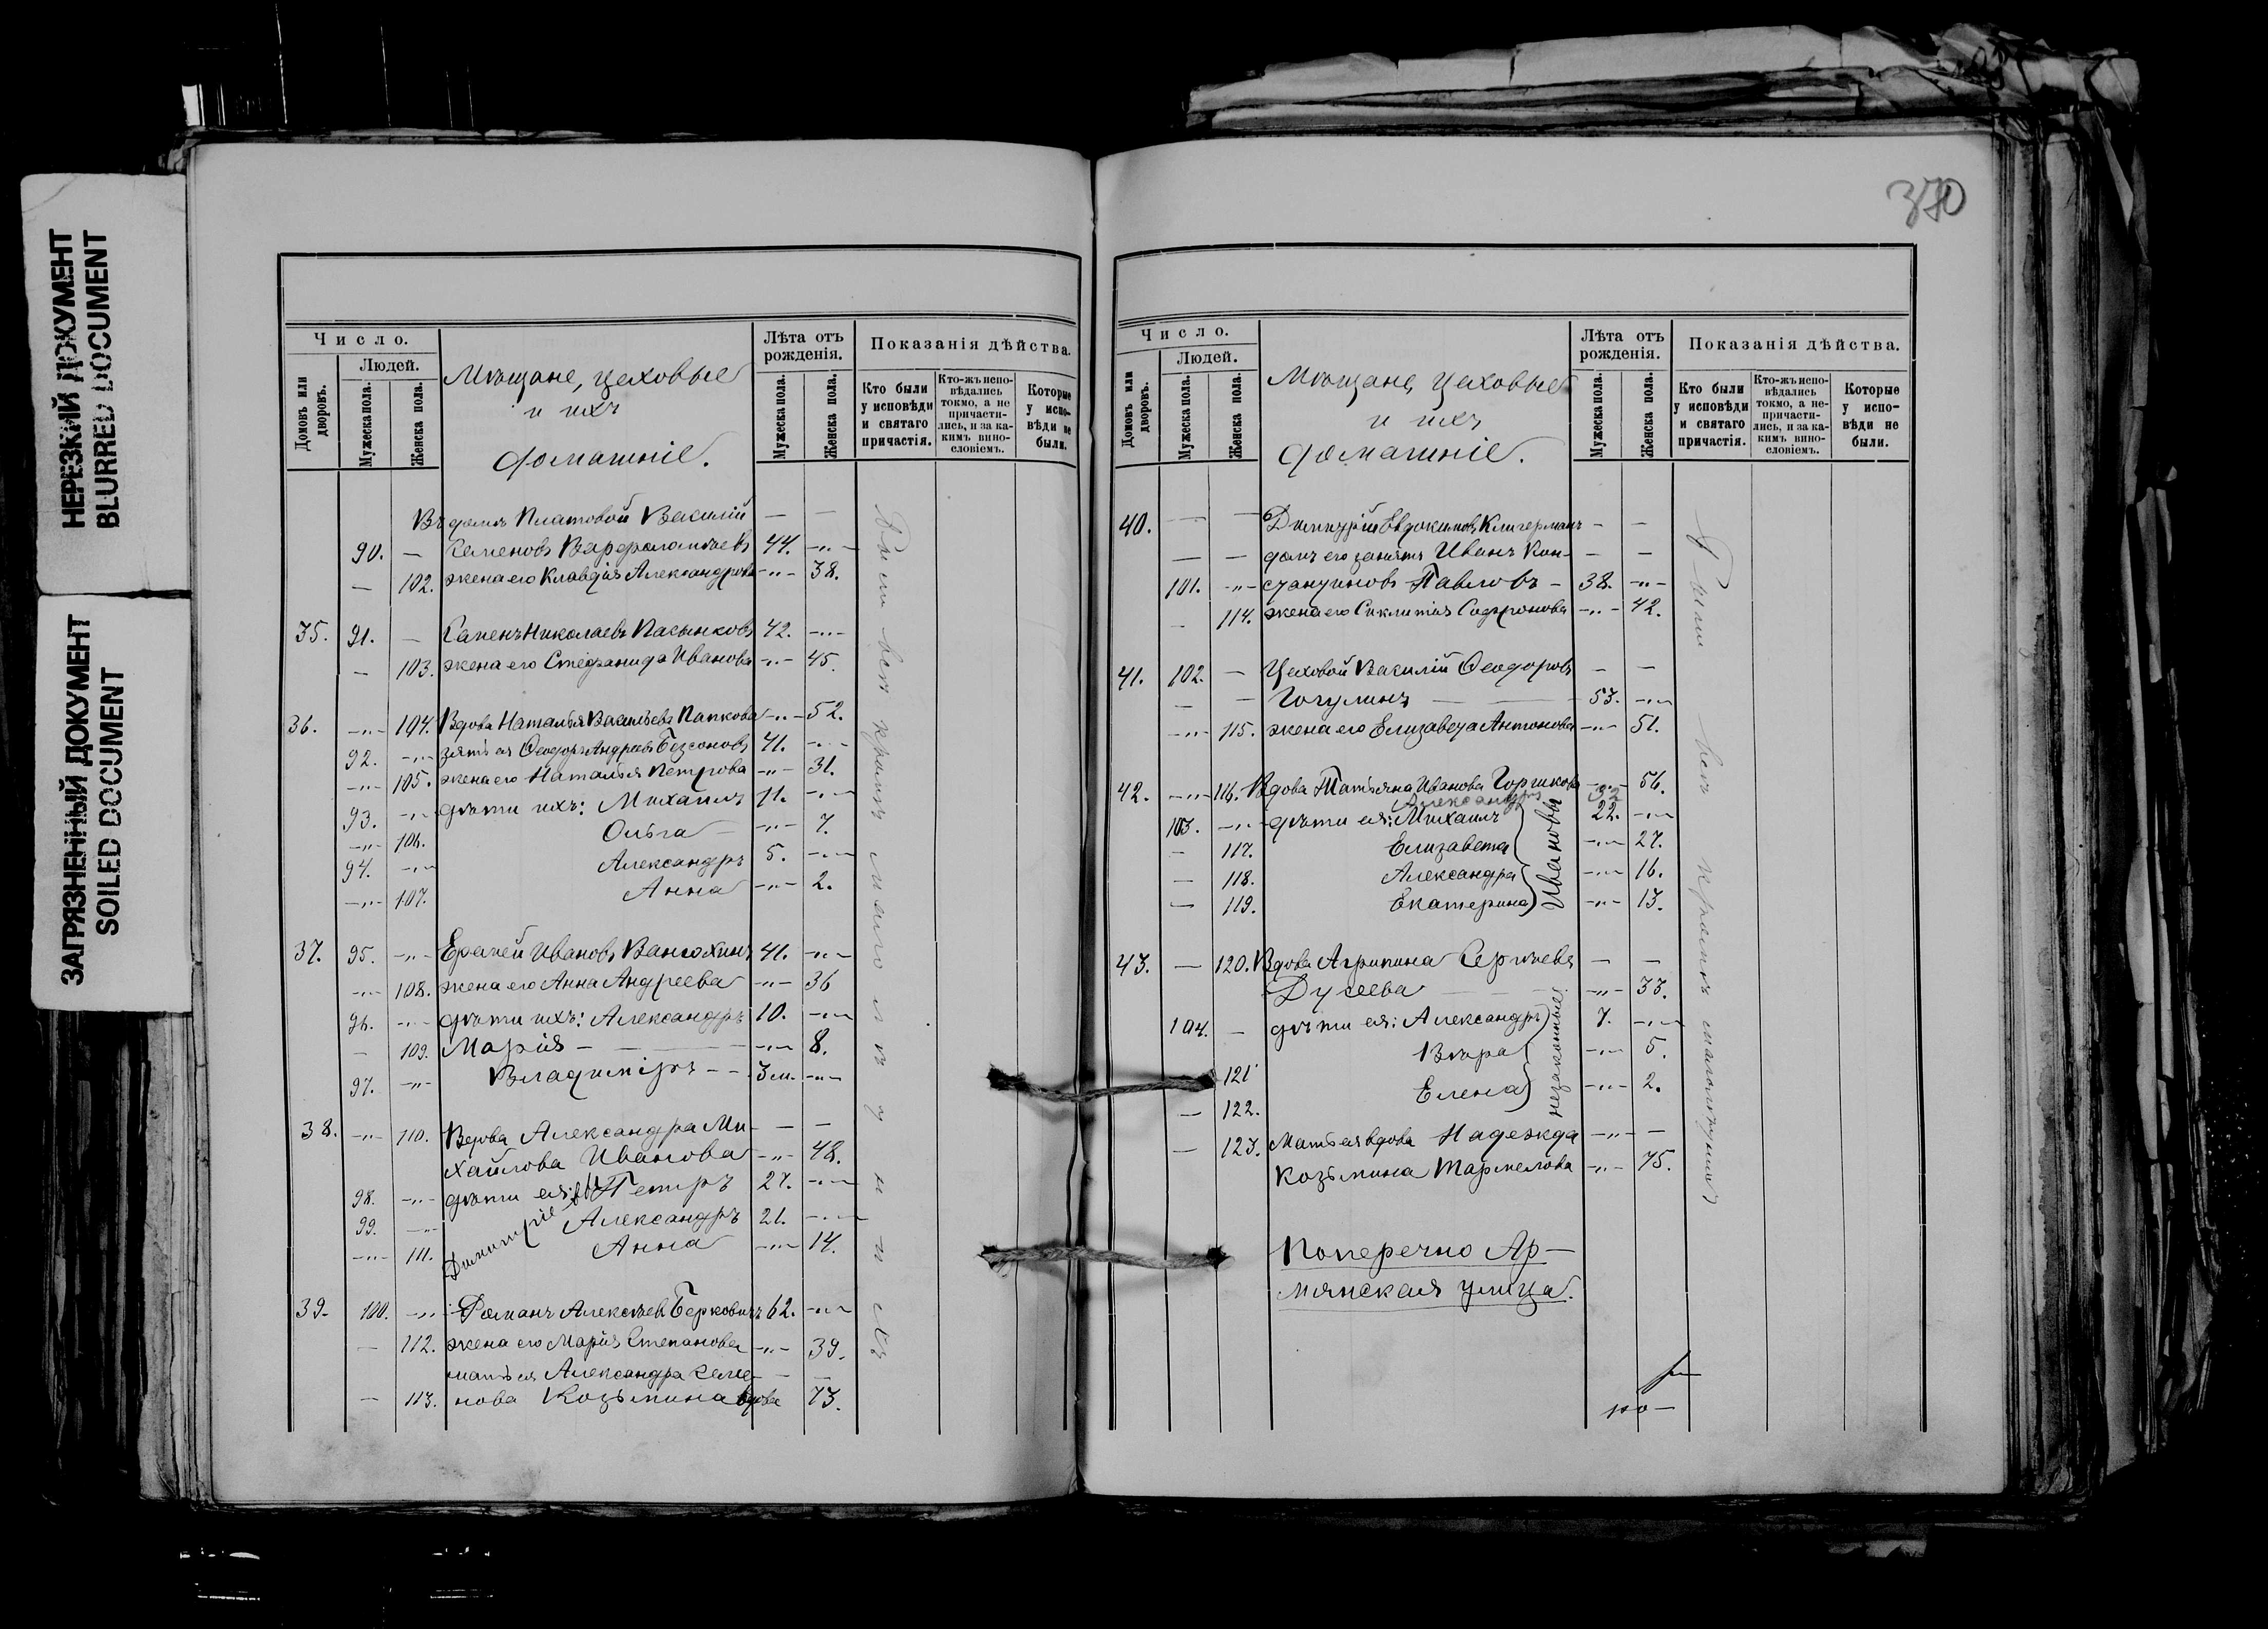 НЕРЕЗКИЙ ДОКУМЕНТ
BLURRED DOCUMENT
ЗАГРЯЗНЕННЫЙ ДОКУМЕНТ
SOILED DOCUMENT
Число.
Людей.
Домовъ или дворовъ.
Мужеска пола.
Женска пола.
Мѣщане, цеховые
и ихъ
домашніе.
Лѣта отъ рожденія.
Мужеска пола.
Женска пола.
Показанія дѣйства.
Кто были у исповѣди и святаго причастія.
Кто-жъ исповѣдались токмо, а не причастились, и за какимъ винословіемъ.
Которые у исповѣди не были.
Въ домѣ Платовой Василій — —
90. — Семеновъ Варфоломѣевъ 44. -"-
— 102. жена его Клавдія Александрова -"- 38.
35. 91. — Семенъ Николаевъ Пасынковъ 42. -"-
— 103. жена его Стефанида Иванова -"- 45.
36. -"- 104. Вдова Наталья Васильева Папкова -"- 52.
92. -"- зять ея Ѳеодоръ Андреевъ Безсоновъ 41. -"-
-"- 105. жена его Наталья Петрова -"- 31.
93. -"- дѣти ихъ: Михаилъ 11. -"-
-"- 106. Ольга -"- 7.
94. -"- Александръ 5. -"-
-"- 107. Анна -"- 2.
37. 95. -"- Ермей Ивановъ Ванюхинъ 41. -"-
-"- 108. жена его Анна Андреева -"- 36
96. -"- дѣти ихъ: Александръ 10. -"-
— 109. Марія -"- 8.
97. -"- Владиміръ 3 м. -"-
38. -"- 110. Вдова Александра Ми- — —
хайлова Иванова -"- 48.
98. -"- дѣти ея: Петръ 27. -"-
99. -"- Александръ 21. -"-
-"- 111. Анна -"- 14.
Димитріевы
39. 100. -"- Романъ Алексѣевъ Берковичъ 62. -"-
— 112. жена его Марія Степанова -"- 39.
мать ея Александра Семе- — —
— 113. нова Козьмина вдова 73.
Были всѣ кромѣ малолѣтнихъ
370
Число.
Людей.
Домовъ или дворовъ.
Мужеска пола.
Женска пола.
Мѣщане, цеховые
и ихъ
домашніе.
Лѣта отъ рожденія.
Мужеска пола.
Женска пола.
Показанія дѣйства.
Кто были у исповѣди и святаго причастія.
Кто-жъ исповѣдались токмо, а не-причасти-лись, и за какимъ винословіемъ.
Которые у исповѣди не были.
40. — — Димитрій Евдокимовъ Клигерманъ — —
— — домъ его занятъ Иванъ Кон- — —
101. -"- стантиновъ Павловъ — 38. -"-
— 114. жена его Синклитія Софронова -"- 42.
41. 102. — Цеховой Василій Ѳеодоровъ — —
— — Гогулинъ 53. -"-
-"- 115. жена его Елизавета Антонова -"- 51.
42. -"- 116. Вдова Татьяна Иванова Горшкова -"- 56.
Александръ 32
103. -"- дѣти ея: Михаилъ 22. -"-
— 117. Елизавета -"- 27.
— 118. Александра -"- 16.
— 119. Екатерина -"- 13.
Ивановы
43. — 120. Вдова Агрипина Сергѣева — —
Дусеева -"- 33.
104. — дѣти ея: Александръ 7. -"-
121 Вѣра -"- 5.
— 122. Елена -"- 2.
незаконные
— 123. Мать ея вдова Надежда -"- —
Козьмина Тармелова -"- 75.
Поперечно Ар-
мянская улица.
Были всѣ кромѣ малолѣтнихъ